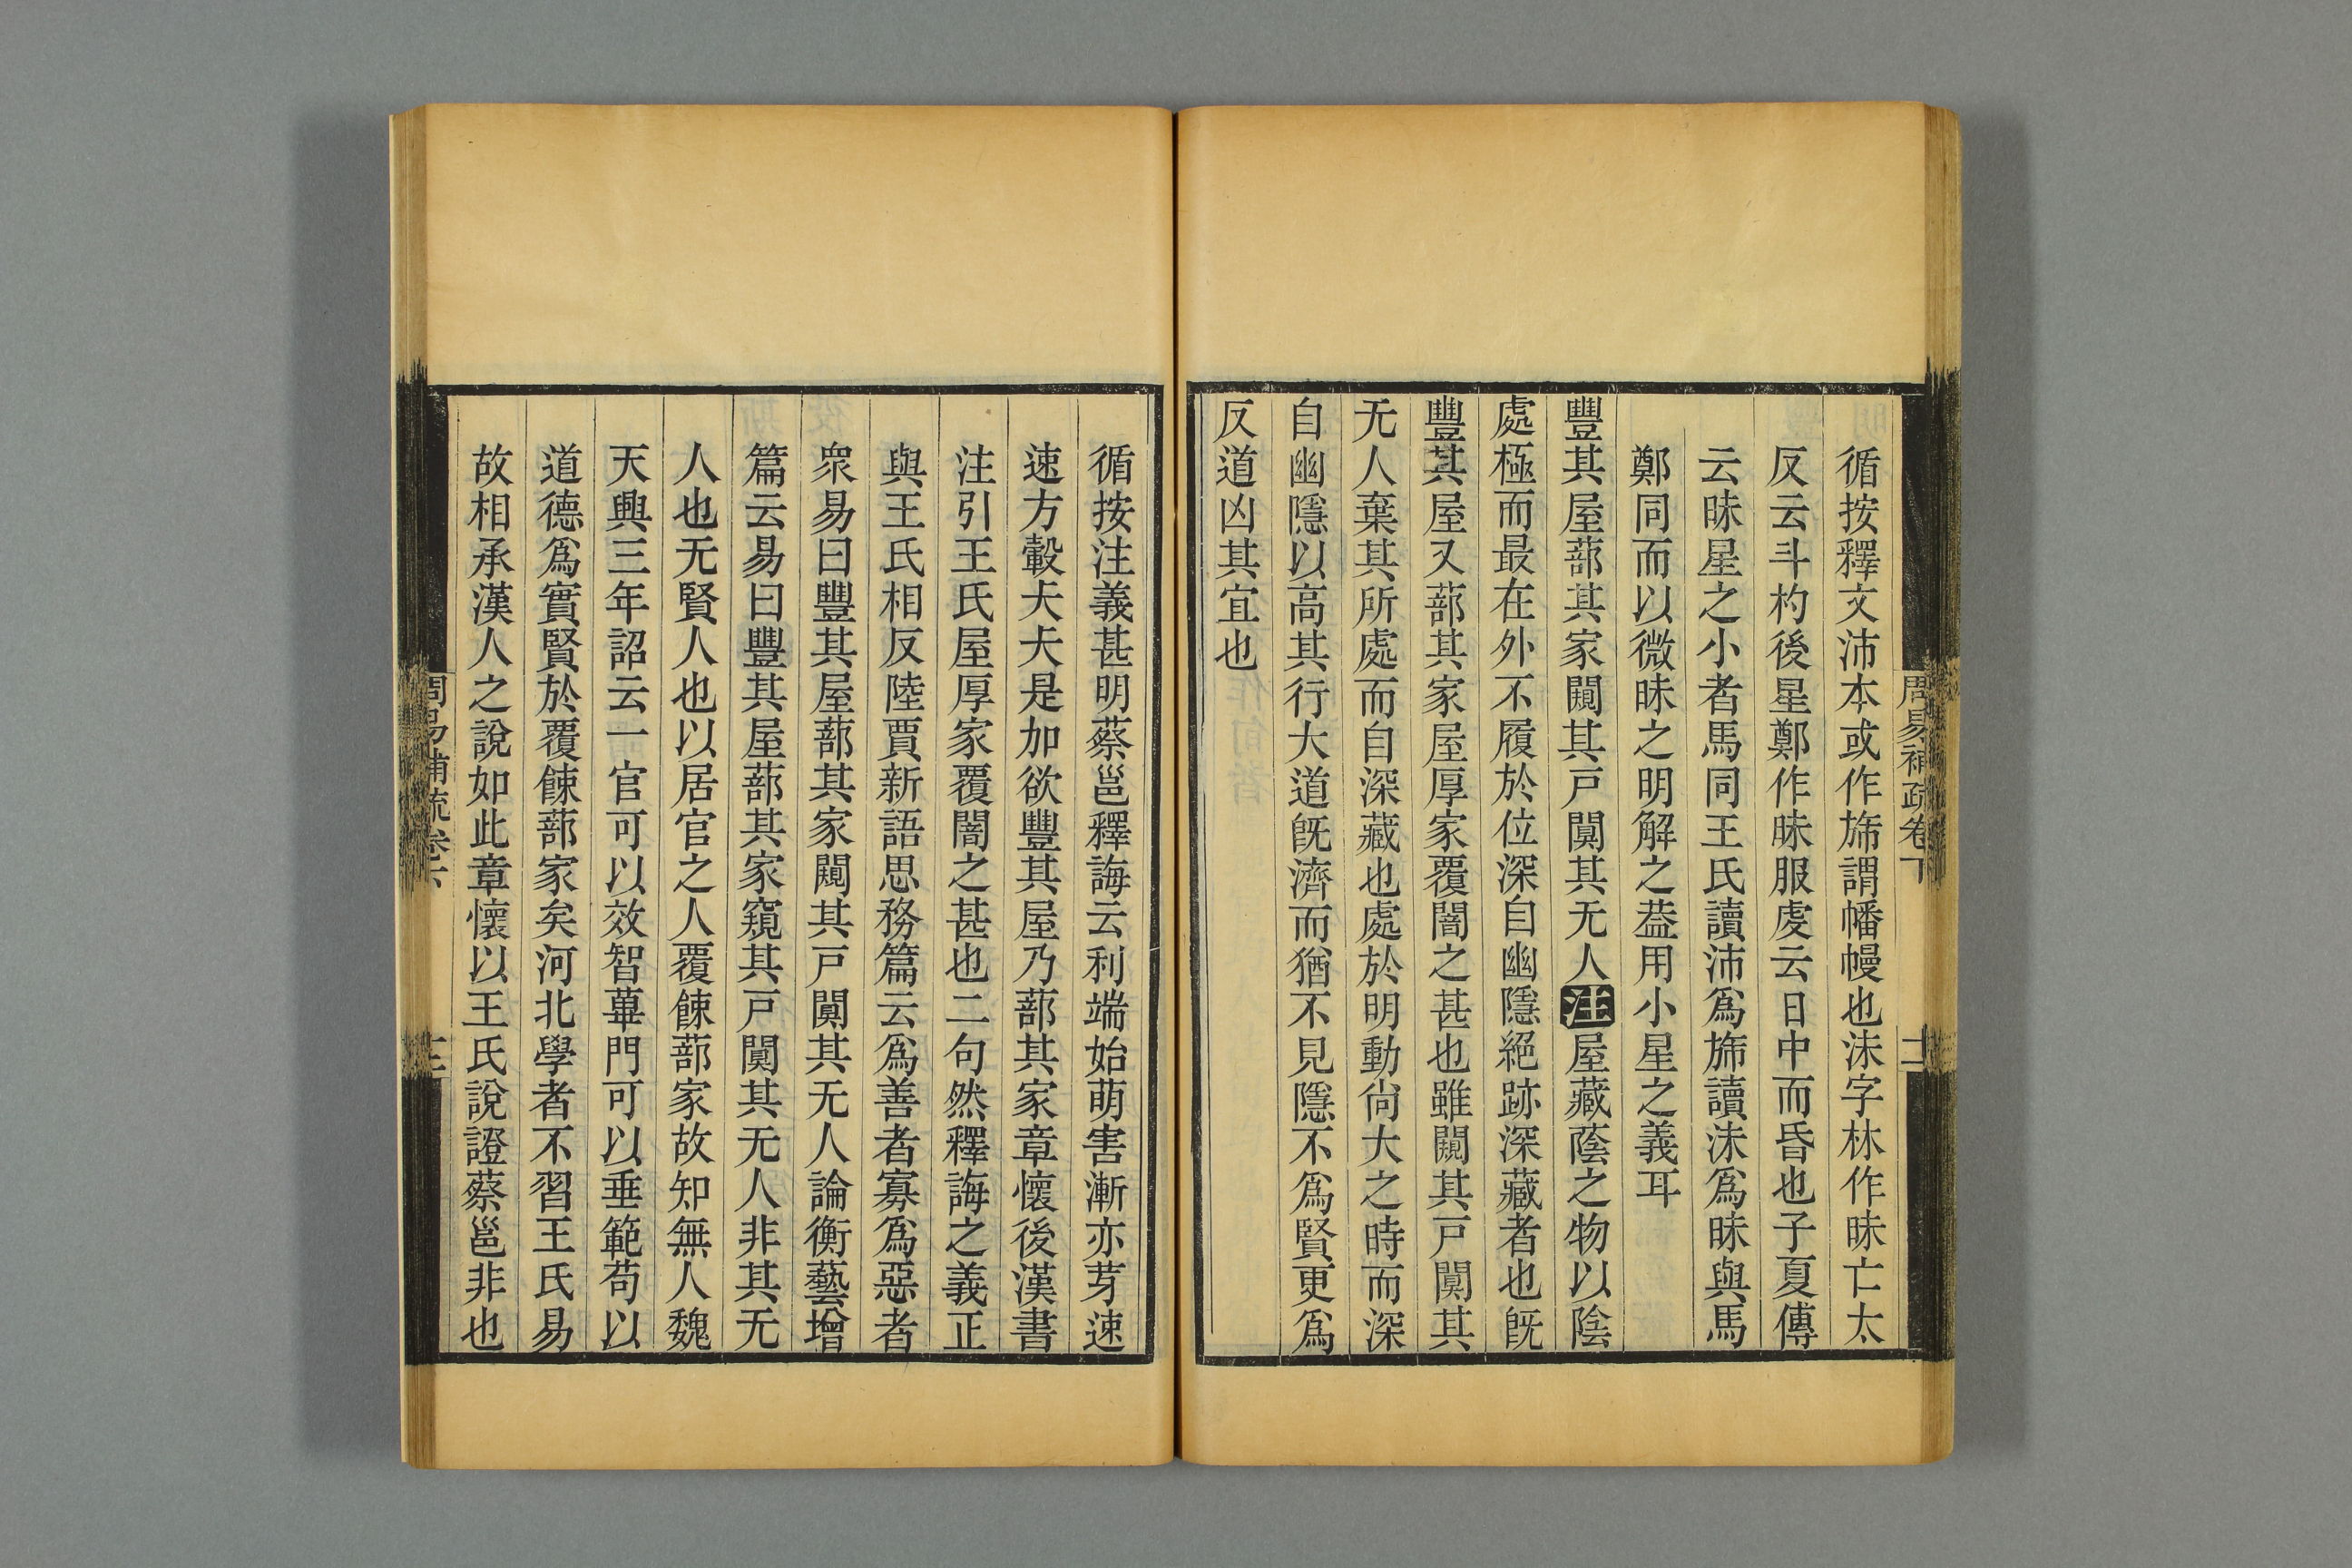 周易補疏卷下
十二
循按釋文沛本或作斾謂幡幔也沬字林作昧亡太
反云斗杓後星鄭作昧服虔云日中而昏也子夏傳
云昧星之小者馬同王氏讀沛爲斾讀沬爲昧與馬
鄭同而以微昧之明解之葢用小星之義耳
豐其屋蔀其家闚其戸闃其无人注屋藏蔭之物以陰
處極而最在外不履於位深自幽隱絕跡深藏者也旣
豐其屋又蔀其家屋厚家覆闇之甚也雖闚其戸闃其
无人棄其所處而自深藏也處於明動尙大之時而深
自幽隱以高其行大道旣濟而猶不見隱不爲賢更爲
反道凶其宜也
循按注義甚明蔡邕釋誨云利端始萌害漸亦芽速
速方轂夭夭是加欲豐其屋乃蔀其家章懷後漢書
注引王氏屋厚家覆闇之甚也二句然釋誨之義正
與王氏相反陸賈新語思務篇云爲善者寡爲惡者
衆易曰豐其屋蔀其家闚其戸闃其无人論衡藝增
篇云易曰豐其屋蔀其家窺其戸闃其无人非其无
人也无賢人也以居官之人覆餗蔀家故知無人魏
天興三年詔云一官可以效智蓽門可以垂範苟以
道德爲實賢於覆餗蔀家矣河北學者不習王氏易
故相承漢人之說如此章懷以王氏說證蔡邕非也